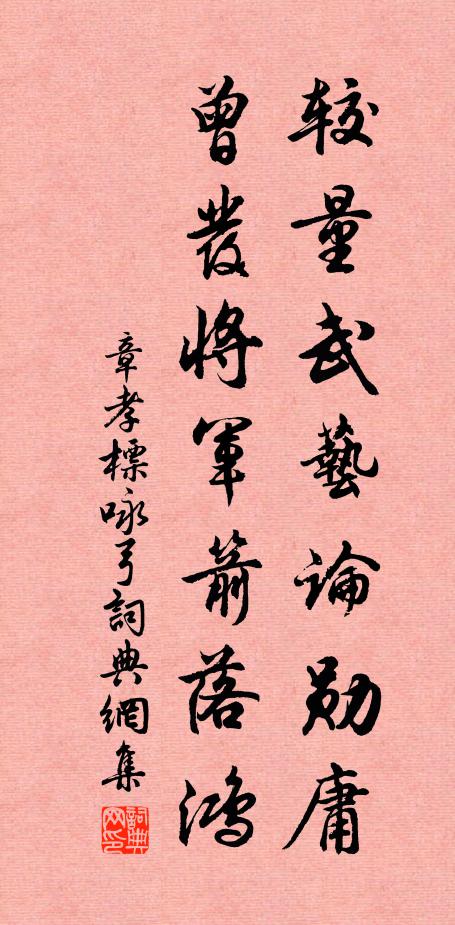 较量武藝論勋庸
曾發將軍箭落鴻
章孝標咏弓詞典網集
詞典網印